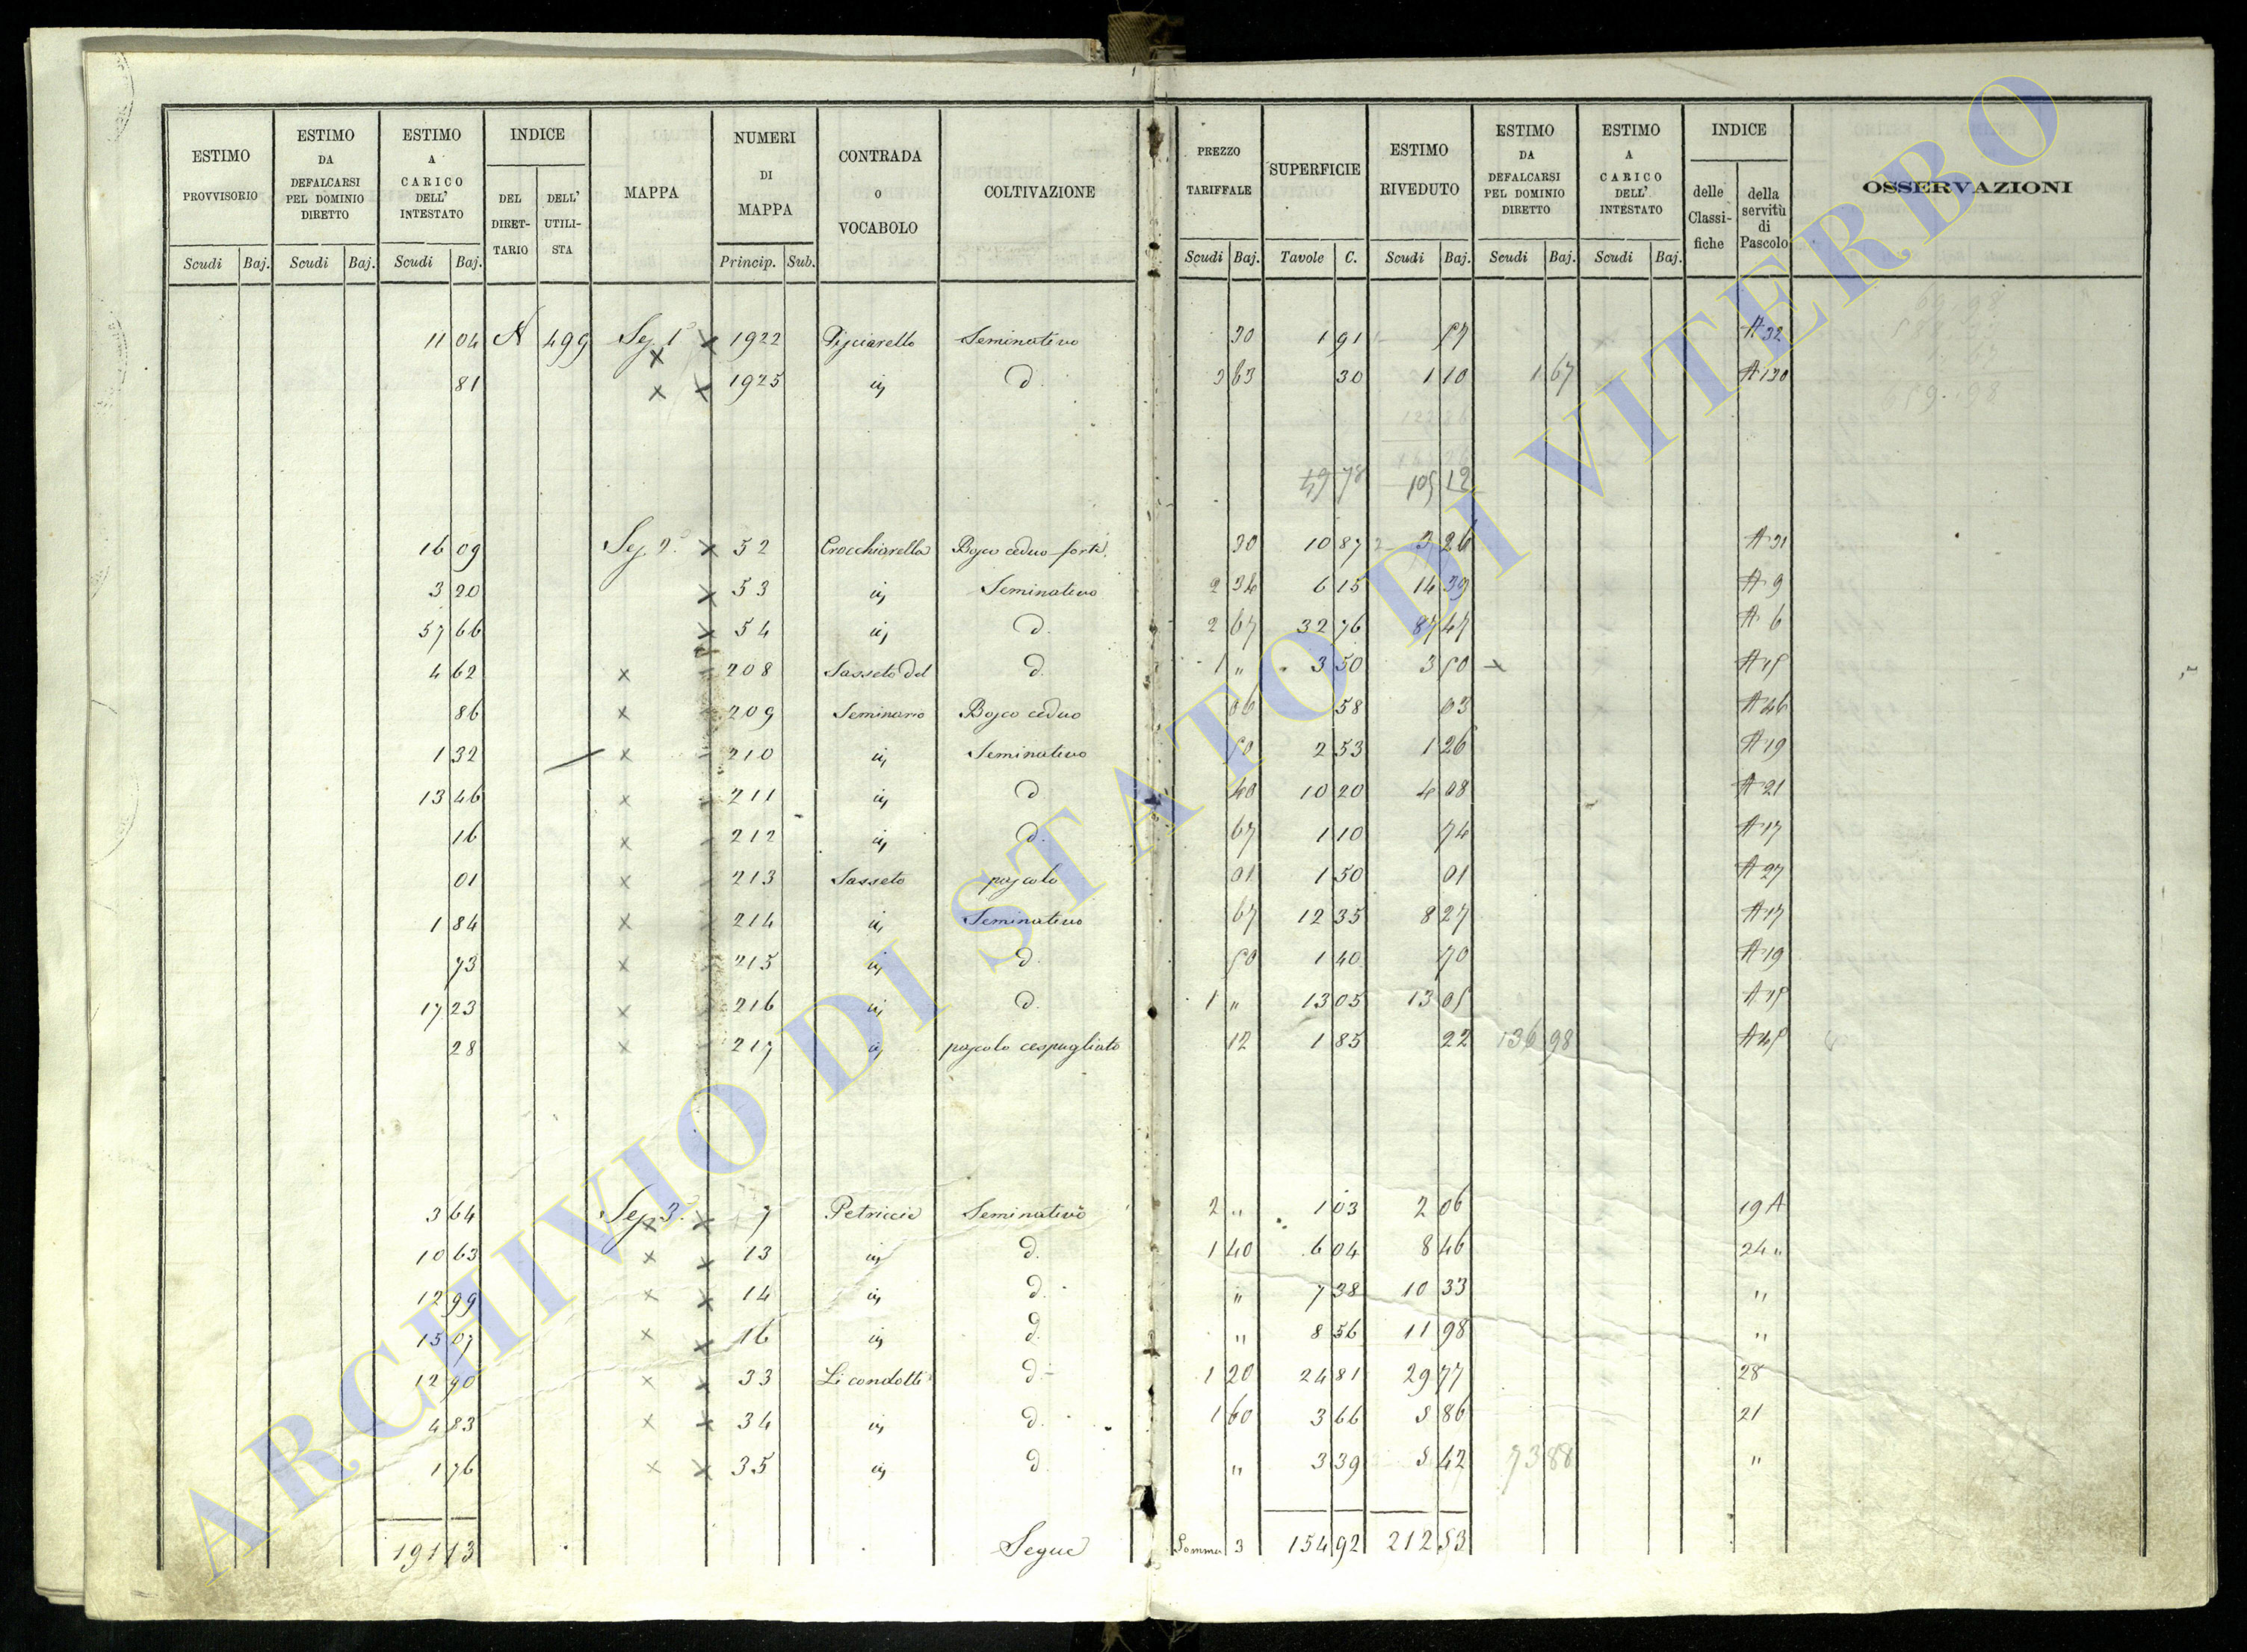 ESTIMO PROVVISORIO | ESTIMO DA DEFALCARSI PEL DOMINIO DIRETTO | ESTIMO A CARICO DELL' INTESTATO | INDICE DEL DIRET-TARIO | DELL' UTILI-STA | MAPPA | NUMERI DI MAPPA | CONTRADA o VOCABOLO | COLTIVAZIONE | PREZZO TARIFFALE | SUPERFICIE | ESTIMO RIVEDUTO | ESTIMO DA DEFALCARSI PEL DOMINIO DIRETTO | ESTIMO A CARICO DELL' INTESTATO | INDICE delle Classi-fiche | della servitù di Pascolo | OSSERVAZIONI
Scudi | Baj. | Scudi | Baj. | Scudi | Baj. | Princip. | Sub. | Scudi | Baj. | Tavole | C. | Scudi | Baj. | Scudi | Baj. | Scudi | Baj.
11 04 | A | 499 | Sez. 1ª x | 1922 | Pisciarello | Seminativo | 30 | 1 91 | 57 | A 32
81 | x x | 1925 | id | d. | 3 63 | 30 | 1 10 | 1 67 | A 130
49 78 | 105 12
16 09 | Sez. 2ª x | 52 | Crocchiarella | Bosco ceduo forte | 30 | 10 87 | 3 26 | A 31
3 20 | x | 53 | id | Seminativo | 2 34 | 6 15 | 14 39 | A 9
57 66 | x | 54 | id | d. | 2 67 | 32 76 | 87 47 | A 6
4 62 | x | 208 | Sasseto del | d. | 1 " | 3 50 | 3 50 | A 15
86 | x | 209 | Seminario | Bosco ceduo | 06 | 58 | 03 | A 46
1 32 | x | 210 | id | Seminativo | 50 | 2 53 | 1 26 | A 19
13 46 | x | 211 | id | d | 40 | 10 20 | 4 08 | A 21
16 | x | 212 | id | d. | 67 | 1 10 | 74 | A 17
01 | x | 213 | Sasseto | pascolo | 01 | 1 50 | 01 | A 27
1 84 | x | 214 | id | Seminativo | 67 | 12 35 | 8 27 | A 17
73 | x | 215 | id | d. | 50 | 1 40 | 70 | A 19
17 23 | x | 216 | id | d. | 1 " | 13 05 | 13 05 | A 15
28 | x | 217 | id | pascolo cespugliato | 12 | 1 85 | 22 | 136 98 | A 45
3 64 | Sez. 3ª x x | 7 | Petriccio | Seminativo | 2 " | 1 03 | 2 06 | 19 A
10 63 | x x | 13 | id | d. | 1 40 | 6 04 | 8 46 | 24 "
12 99 | x x | 14 | id | d. | " | 7 38 | 10 33 | "
15 07 | x x | 16 | id | d. | " | 8 56 | 11 98 | "
12 90 | x x | 33 | Li condotti | d | 1 20 | 24 81 | 29 77 | 28
4 83 | x x | 34 | id | d. | 1 60 | 3 66 | 5 86 | 21
1 76 | x x | 35 | id | d | " | 3 39 | 5 42 | 73 88 | "
191 13 | Segue | Somma 3 | 154 92 | 212 53
ARCHIVIO DI STATO DI VITERBO